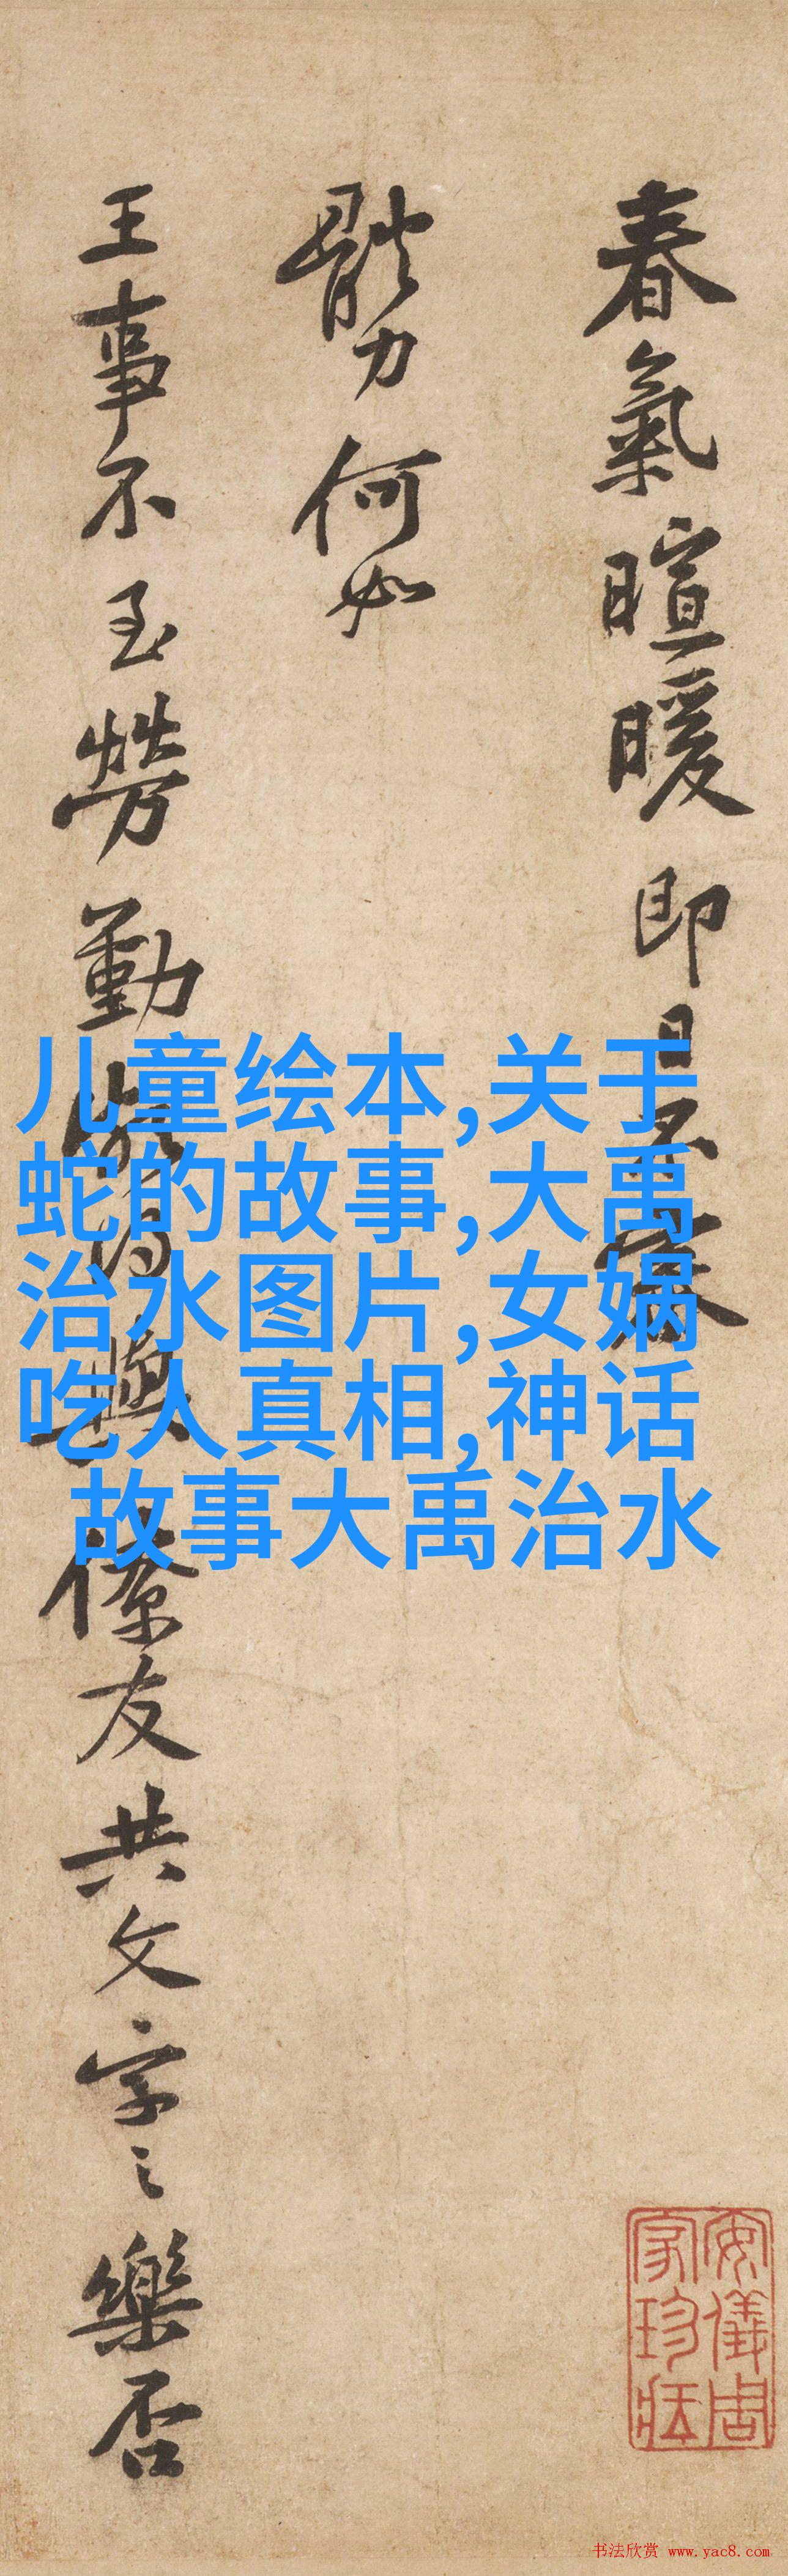 春氣暄暖即日不審
體力何如
王事不至勞勤
僚友共文字之樂否
儿童绘本,关于
蛇的故事,大禹
治水图片,女娲
吃人真相,神话
故事大禹治水
安儀周
家珍藏
书法欣赏 www.yac8.com